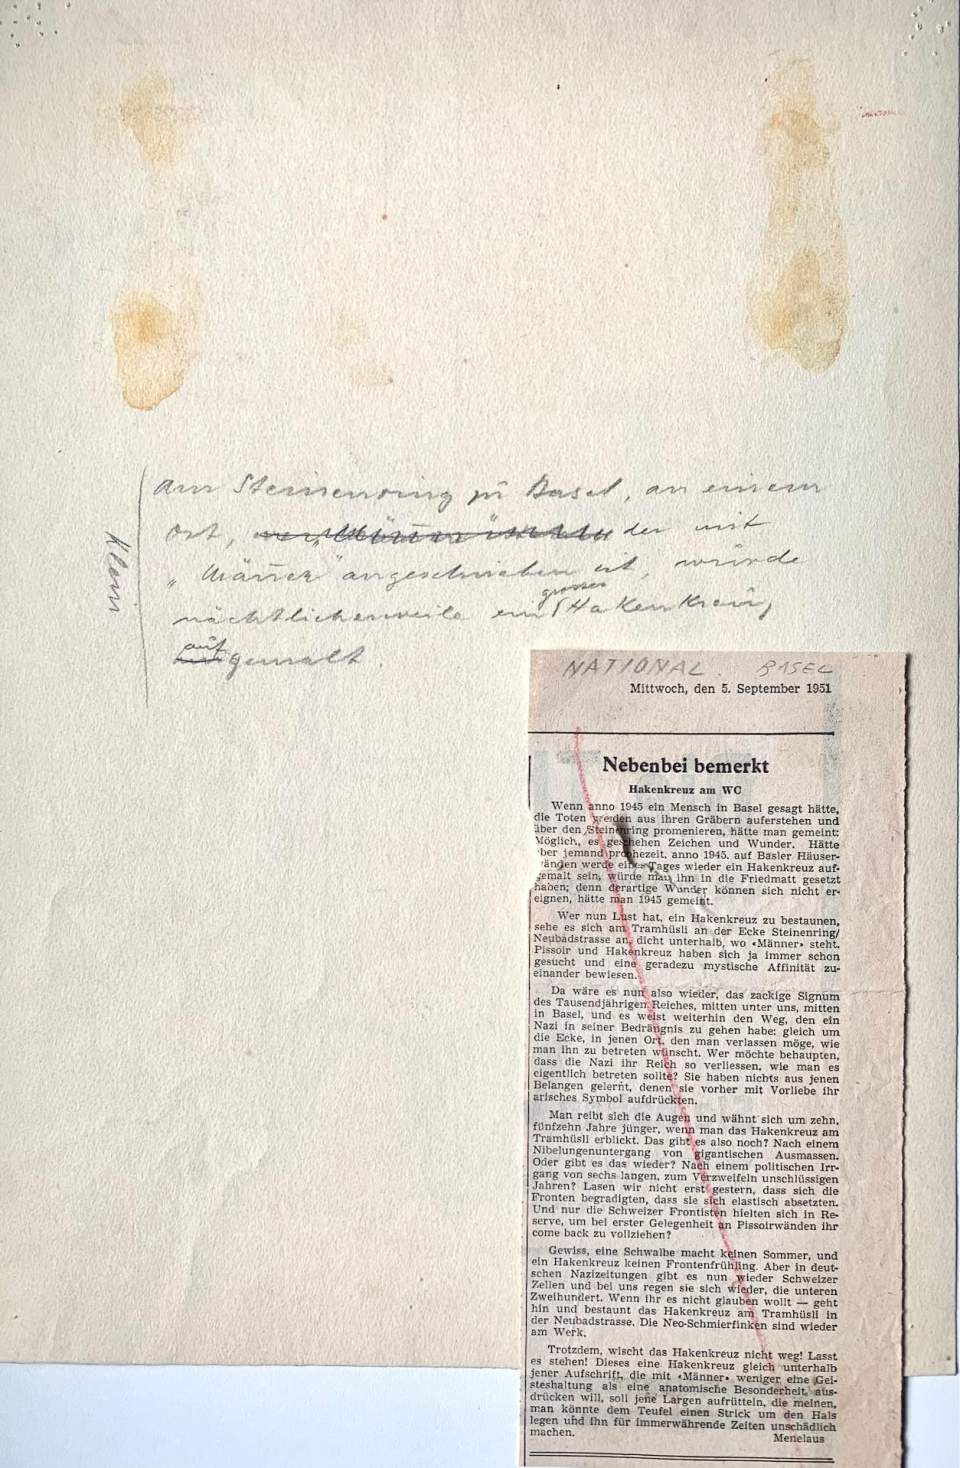 am Steinenring zu Basel, an einem
Ort, der mit
„Männer" angeschrieben ist, wurde
nächtlicherweile ein grosses Hakenkreuz
aufgemalt.
Klein
NATIONAL. BASEL
Mittwoch, den 5. September 1951
Nebenbei bemerkt
Hakenkreuz am WC
Wenn anno 1945 ein Mensch in Basel gesagt hätte,
die Toten werden aus ihren Gräbern auferstehen und
über den Steinenring promenieren, hätte man gemeint:
Möglich, es geschehen Zeichen und Wunder. Hätte
aber jemand prophezeit, anno 1945, auf Basler Häuser-
wänden werde eines Tages wieder ein Hakenkreuz auf-
gemalt sein, würde man ihn in die Friedmatt gesetzt
haben; denn derartige Wunder können sich nicht er-
eignen, hätte man 1945 gemeint.
Wer nun Lust hat, ein Hakenkreuz zu bestaunen,
sehe es sich am Tramhüsli an der Ecke Steinenring/
Neubadstrasse an, dicht unterhalb, wo «Männer» steht.
Pissoir und Hakenkreuz haben sich ja immer schon
gesucht und eine geradezu mystische Affinität zu-
einander bewiesen.
Da wäre es nun also wieder, das zackige Signum
des Tausendjährigen Reiches, mitten unter uns, mitten
in Basel, und es weist weiterhin den Weg, den ein
Nazi in seiner Bedrängnis zu gehen habe: gleich um
die Ecke, in jenen Ort, den man verlassen möge, wie
man ihn zu betreten wünscht. Wer möchte behaupten,
dass die Nazi ihr Reich so verliessen, wie man es
eigentlich betreten sollte? Sie haben nichts aus jenen
Belangen gelernt, denen sie vorher mit Vorliebe ihr
arisches Symbol aufdrückten.
Man reibt sich die Augen und wähnt sich um zehn,
fünfzehn Jahre jünger, wenn man das Hakenkreuz am
Tramhüsli erblickt. Das gibt es also noch? Nach einem
Nibelungenuntergang von gigantischen Ausmassen.
Oder gibt es das wieder? Nach einem politischen Irr-
gang von sechs langen, zum Verzweifeln unschlüssigen
Jahren? Lasen wir nicht erst gestern, dass sich die
Fronten begradigten, dass sie sich elastisch absetzten.
Und nur die Schweizer Frontisten hielten sich in Re-
serve, um bei erster Gelegenheit an Pissoirwänden ihr
come back zu vollziehen?
Gewiss, eine Schwalbe macht keinen Sommer, und
ein Hakenkreuz keinen Frontenfrühling. Aber in deut-
schen Nazizeitungen gibt es nun wieder Schweizer
Zellen und bei uns regen sie sich wieder, die unteren
Zweihundert. Wenn ihr es nicht glauben wollt — geht
hin und bestaunt das Hakenkreuz am Tramhüsli in
der Neubadstrasse. Die Neo-Schmierfinken sind wieder
am Werk.
Trotzdem, wischt das Hakenkreuz nicht weg! Lasst
es stehen! Dieses eine Hakenkreuz gleich unterhalb
jener Aufschrift, die mit «Männer» weniger eine Gei-
steshaltung als eine anatomische Besonderheit aus-
drücken will, soll jene Largen aufrütteln, die meinen,
man könnte dem Teufel einen Strick um den Hals
legen und ihn für immerwährende Zeiten unschädlich
machen.
Menelaus